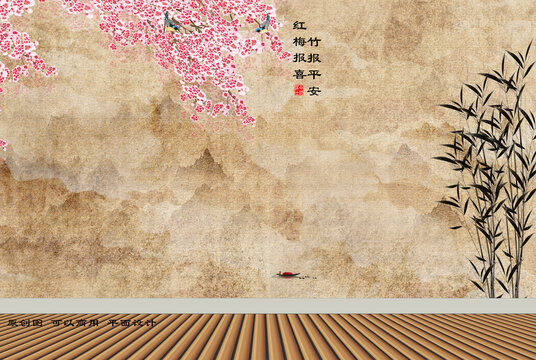 竹报平安
红梅报喜
原创图 可以商用 平面设计